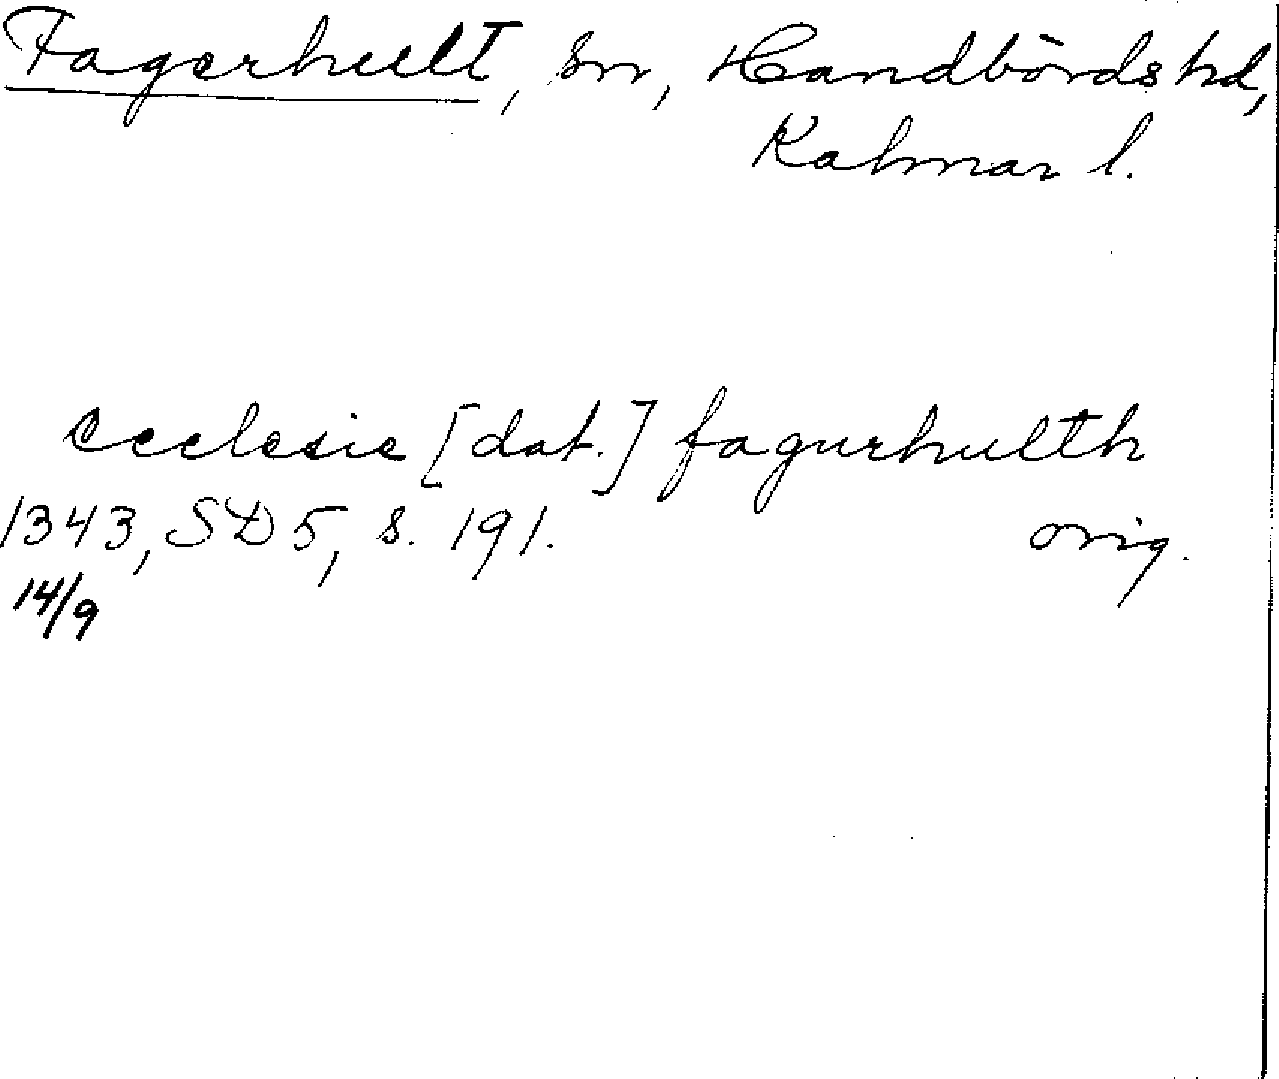 Fagerhult, sn, Handbörds hd,
Kalmar l.
ecclesie [dat.] fagurhulth
1343, SD 5, s. 191. orig.
14/9